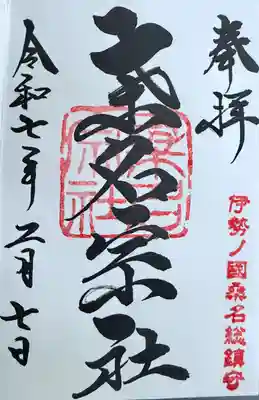 奉拝
伊勢ノ國桑名総鎮守
桑名宗社
桑名宗社
令和七年二月七日